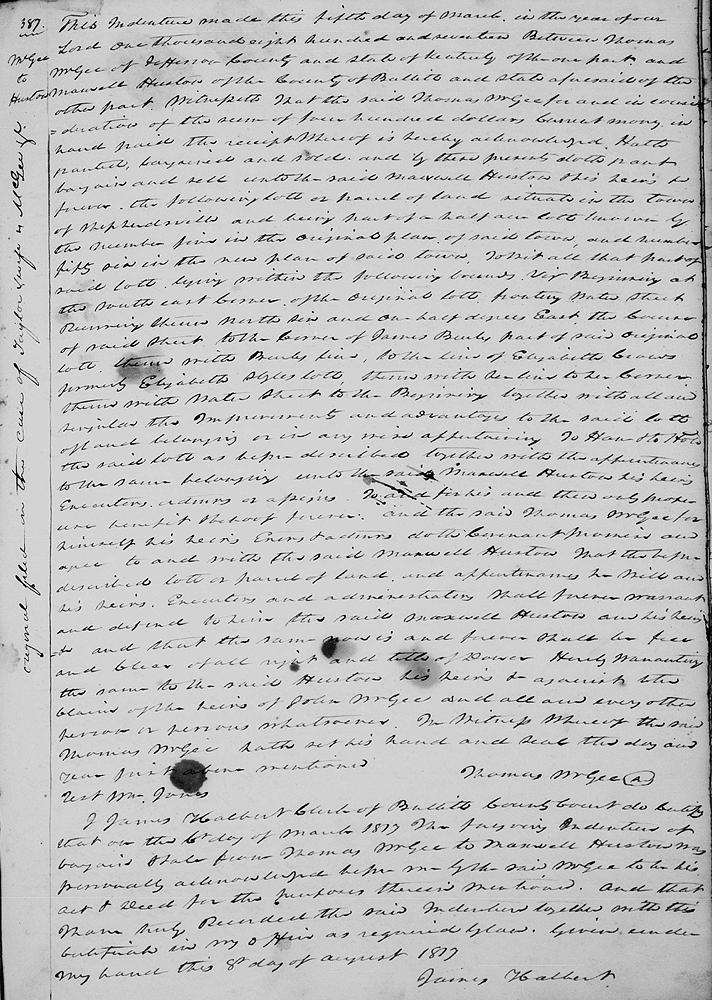 387.
McGee
to
Huston
original filed in the case of Taylor & wife vs McGee &c
This Indenture made this fifth day of March in the year of our
Lord one thousand eight hundred and seventeen Between Thomas
McGee of Jefferson County and state of Kentucky of the one part and
Maxwell Huston of the County of Bullitt and state aforesaid of the
other part. Witnesseth that the said Thomas McGee for and in consid
=eration of the sum of four hundred dollars Current money in
hand paid the receipt whereof is hereby acknowledged. Hath
granted, bargained and sold. and by these presents doth grant
bargain and sell unto the said Maxwell Huston his heirs &
forever. the following lott or parcel of land situate in the town
of Shepherdsville and being part of a half acre lott known by
the number five in the original plan of said town, and number
fifty six in the new plan of said town, To Wit all that part of
said lott. lying within the following bounds. Viz Beginning at
the south east Corner of the original lott. fronting Water Street
Running thence North six and one half degrees East. the Course
of said Street to the Corner of James Burks part of said original
lott. thence with Burks line, to the line of Elizabeth Crows
formerly Elizabeth Styles lott, thence with her line to her Corner
thence with Water Street to the Beginning together with all and
singular the Improvements and advantages to the said lott
of land belonging or in any wise appertaining To Have & to Hold
the said lott as before described together with the appurtenances
to the same belonging unto the said Maxwell Huston his heirs
Executors. admrs or assigns. To and for his and their only proper
use benefit & behoof forever. and the said Thomas McGee for
himself his heirs Exers & admrs doth Covenant promise and
agree to and with the said Maxwell Huston that the before
described lott or parcel of land. and appurtenances he Will and
his heirs. Executors and administrators shall forever warrant
and defend to him the said Maxwell Huston and his heirs
& and that the same now is and forever shall be free
and Clear of all right and title of Dower Hereby Warranting
the same to the said Huston his heirs & against the
Claim of the heirs of John McGee and all and every other
person or persons whatsoever. In Witness Whereof the said
Thomas McGee hath set his hand and seal the day and
year first above mentioned
Thomas McGee
Test Wm. Jones
I James Halbert Clerk of Bullitt County Court do Certify
that on the 6th day of March 1817 The foregoing Indenture of
bargain & sale from Thomas McGee to Maxwell Huston was
personally acknowledged before me by the said McGee to be his
act & Deed for the purposes therein mentioned. and that
I have truly Recorded the said Indenture together with this
Certificate in my Office as required by law. Given under
my hand this 8th day of august 1817
James Halbert